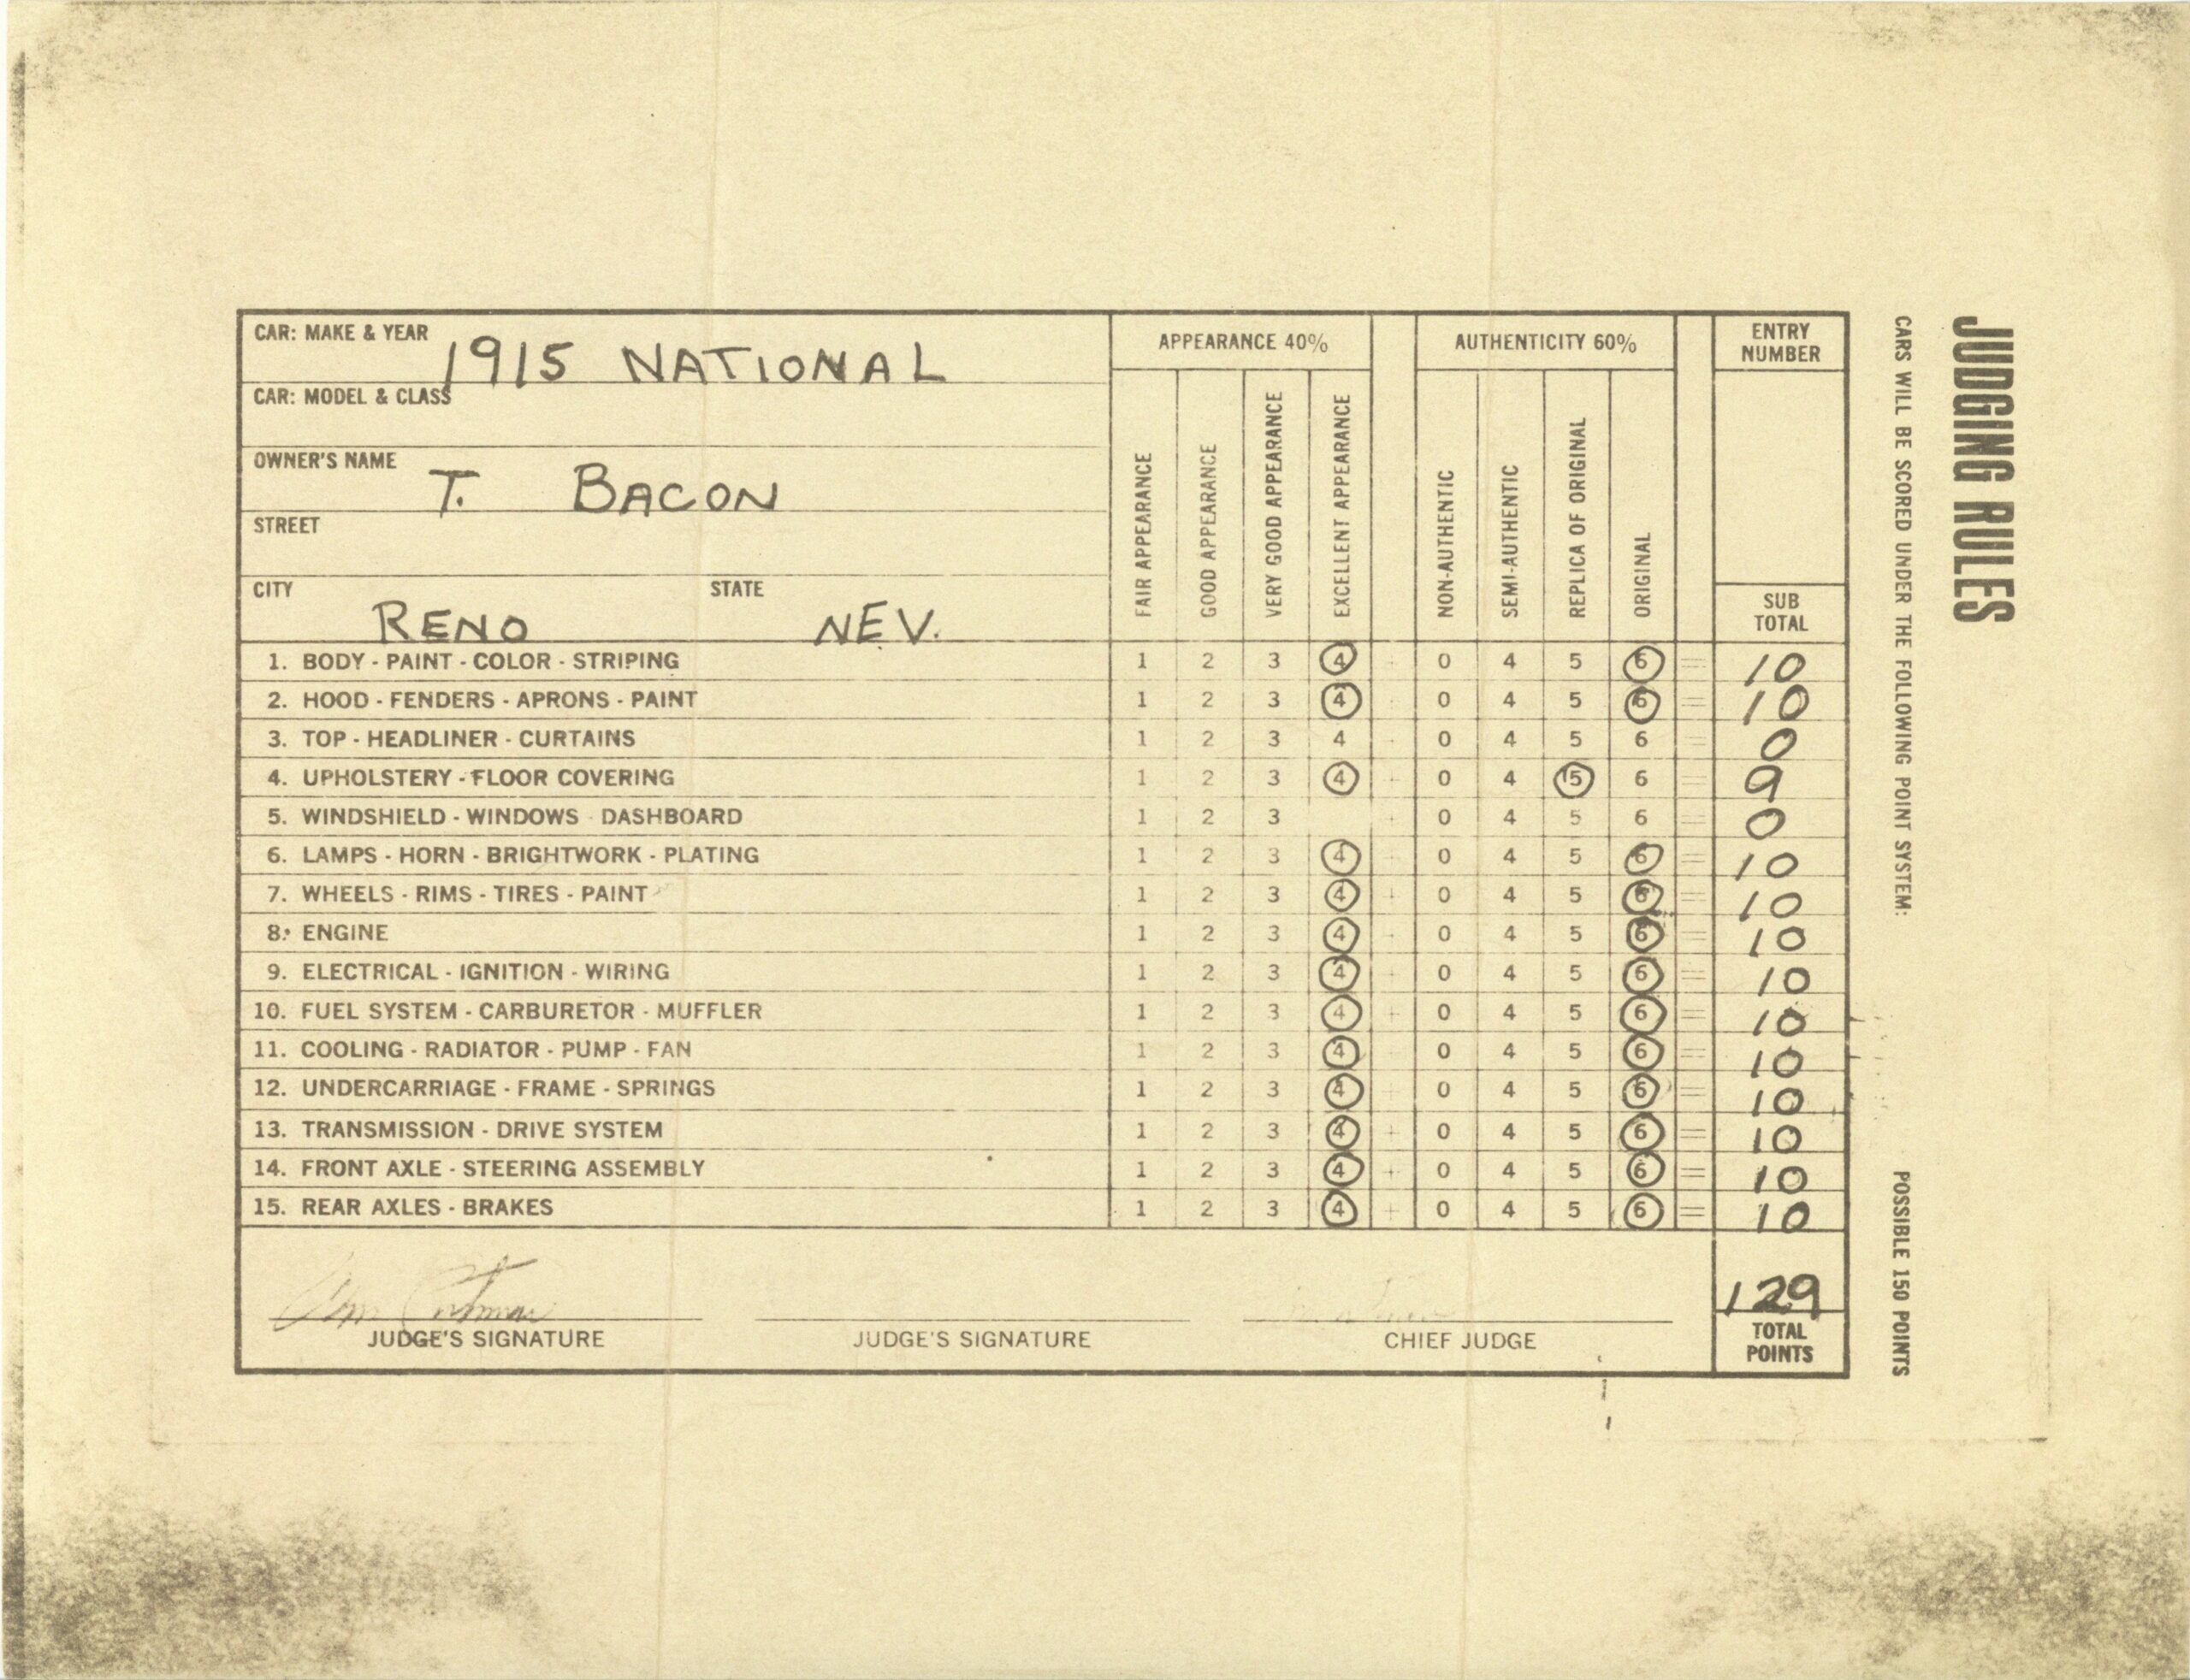 CAR: MAKE & YEAR 1915 NATIONAL
CAR: MODEL & CLASS
OWNER'S NAME T. BACON
STREET
CITY RENO STATE NEV.
APPEARANCE 40% AUTHENTICITY 60% ENTRY NUMBER
FAIR APPEARANCE
GOOD APPEARANCE
VERY GOOD APPEARANCE
EXCELLENT APPEARANCE
NON-AUTHENTIC
SEMI-AUTHENTIC
REPLICA OF ORIGINAL
ORIGINAL
SUB TOTAL
1. BODY - PAINT - COLOR - STRIPING 1 2 3 4 0 4 5 6 = 10
2. HOOD - FENDERS - APRONS - PAINT 1 2 3 4 0 4 5 6 = 10
3. TOP - HEADLINER - CURTAINS 1 2 3 4 0 4 5 6 = 0
4. UPHOLSTERY - FLOOR COVERING 1 2 3 4 + 0 4 5 6 = 9
5. WINDSHIELD - WINDOWS - DASHBOARD 1 2 3 + 0 4 5 6 = 0
6. LAMPS - HORN - BRIGHTWORK - PLATING 1 2 3 4 0 4 5 6 = 10
7. WHEELS - RIMS - TIRES - PAINT 1 2 3 4 + 0 4 5 6 = 10
8. ENGINE 1 2 3 4 0 4 5 6 = 10
9. ELECTRICAL - IGNITION - WIRING 1 2 3 4 + 0 4 5 6 = 10
10. FUEL SYSTEM - CARBURETOR - MUFFLER 1 2 3 4 + 0 4 5 6 = 10
11. COOLING - RADIATOR - PUMP - FAN 1 2 3 4 0 4 5 6 = 10
12. UNDERCARRIAGE - FRAME - SPRINGS 1 2 3 4 0 4 5 6 = 10
13. TRANSMISSION - DRIVE SYSTEM 1 2 3 4 + 0 4 5 6 = 10
14. FRONT AXLE - STEERING ASSEMBLY 1 2 3 4 + 0 4 5 6 = 10
15. REAR AXLES - BRAKES 1 2 3 4 + 0 4 5 6 = 10
129
JUDGE'S SIGNATURE JUDGE'S SIGNATURE CHIEF JUDGE TOTAL POINTS
JUDGING RULES
CARS WILL BE SCORED UNDER THE FOLLOWING POINT SYSTEM: POSSIBLE 150 POINTS